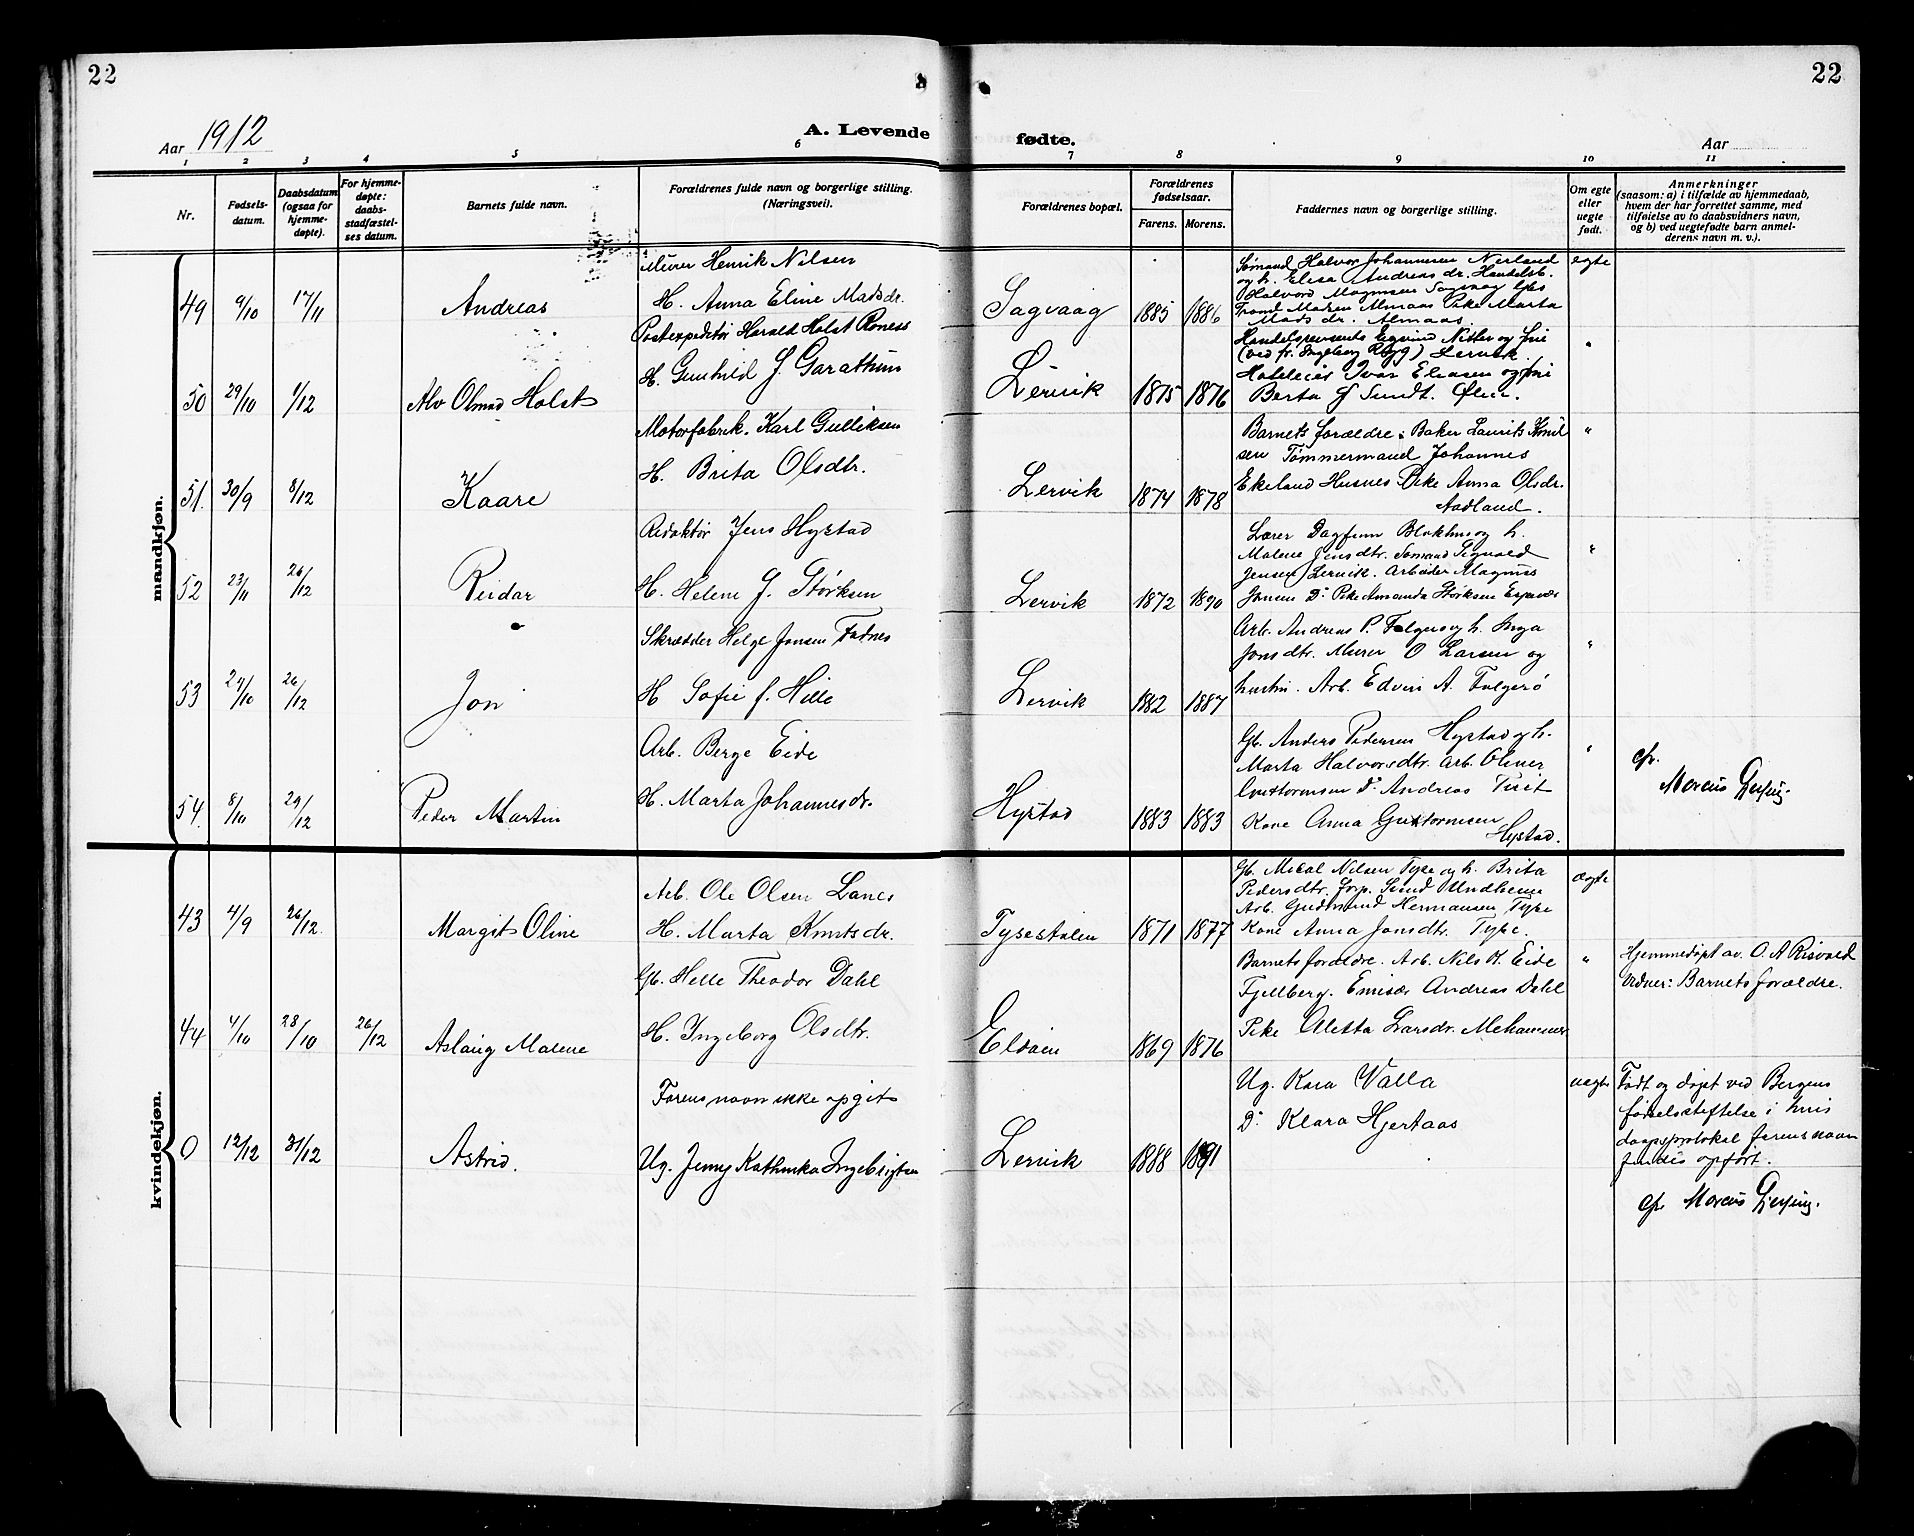 22
22
Aar 1912
A. Levende
fødte.
Aar
1 2 3 4 5 6 7 8 9 10 11
Nr.
Fødsels-
datum.
Daabsdatum
(ogsaa for
hjemme-
døpte).
For hjemme-
døpte:
daabs-
stadfæstel-
ses datum.
Barnets fulde navn.
Forældrenes fulde navn og borgerlige stilling.
(Næringsvei).
Forældrenes bopæl.
Forældrenes
fødselsaar.
Farens. Morens.
Faddernes navn og borgerlige stilling.
Om egte
eller
uegte
født.
Anmerkninger
(saasom: a) i tilfælde av hjemmedaab,
hvem der har forrettet samme, med
tilføielse av to daabsvidners navn,
og b) ved uegtefødte barn anmel-
derens navn m. v.).
mandkjøn.
49 9/10 17/11 Andreas
Murer Henrik Nilsen
H. Anna Eline Madsdr.
Sagvaag 1885 1886
Sømand Halvor Johannesen Nerland
og h. Elisa Andreas dr. Handelsb.
Halvord Magnusen Sagvaag
Trond Madsen Almaas Pike Marta
Mads dr. Almaas.
egte
50 29/10 1/12 Alv Olmad Holst
Postexpeditør Harald Holst Roness
H. Gunhild f. Garathun
Lervik 1875 1876
(ved fr. Ingeborg Rygg) Lervik.
Hoteleier Ivar Eliasen og frue
Berta f Sundt. Ølen.
"
51. 30/9 8/12 Kaare
Motorfabrik. Karl Gulliksen
H. Brita Olsdtr.
Lervik 1874 1878
Barnets forældre; Baker Laurits Knud
sen Tømmermand Johannes
Ekeland Husnes Pike Anna Olsdr.
Aadland.
"
52 23/11 26/12 Reidar
Redaktør Jens Hystad
H. Helene J. Størksen
Lervik 1872 1890
Lærer Dagfinn Blokhus og h.
Malene Jensdtr. Sømand Sigvald
Jensen Lervik. Arbeider Magnus
Jensen Do Pike Amanda Størksen Espevær
"
53 27/10 26/12 Jon
Skrædder Helge Jonsen Fadnes
H Sofie f. Hille
Lervik 1882 1887
Arb. Andreas P. Folgerø og h. Inga
Jonsdtr. Murer O Larsen og
hustru. Arb. Edvin A. Folgerø
"
54. 8/10 29/12 Peder Martin
Arb. Berge Eide
H. Marta Johannesdr.
Hystad 1883 1883
Gb. Anders Pedersen Hystad og h.
Marta Halvorsdtr. Arb. Oliner
Guttormsen Do Andreas
Kone Anna Guttormsen
Hystad.
"
cfr.
Marcus Gjessing.
kvindekjøn.
43 4/9 26/12. Margit Oline
Arb. Ole Olsen Lanes
H. Marta Knutsdr.
Tysestølen 1871 1877
Gb. Mikal Nilsen Tyse og h. Brita
Pedersdtr. Undheim
Arb. Gudmund Hermansen Tyse
Kone Anna Jonsdtr. Tyse.
Ægte
44 4/10 28/10 26/12 Aslaug Malene
Gb. Helle Theodor Dahl
H. Ingeborg Olsdtr.
Eldøen 1869 1876
Barnets forældre. Arb. Nils K. Eide
Fjelberg. Emisær Andreas Dahl
Pike Aletta Larsdr. Mehammer
"
Hjemmedøpt av O. A Risvold
Vidner: Barnets forældre.
0 12/12 31/12 Astrid.
Farens navn ikke opgit
Ug. Jenny Kathinka Ingebrigtsen
Lervik 1888 1891
Ug. Kara Valla
Do Klara Hjertaas
uegte
Født og døpt ved Bergens
fødselsstiftelse i hvis
daapsprotokol farens navn
findes opført.
cfr Marcus Gjessing.